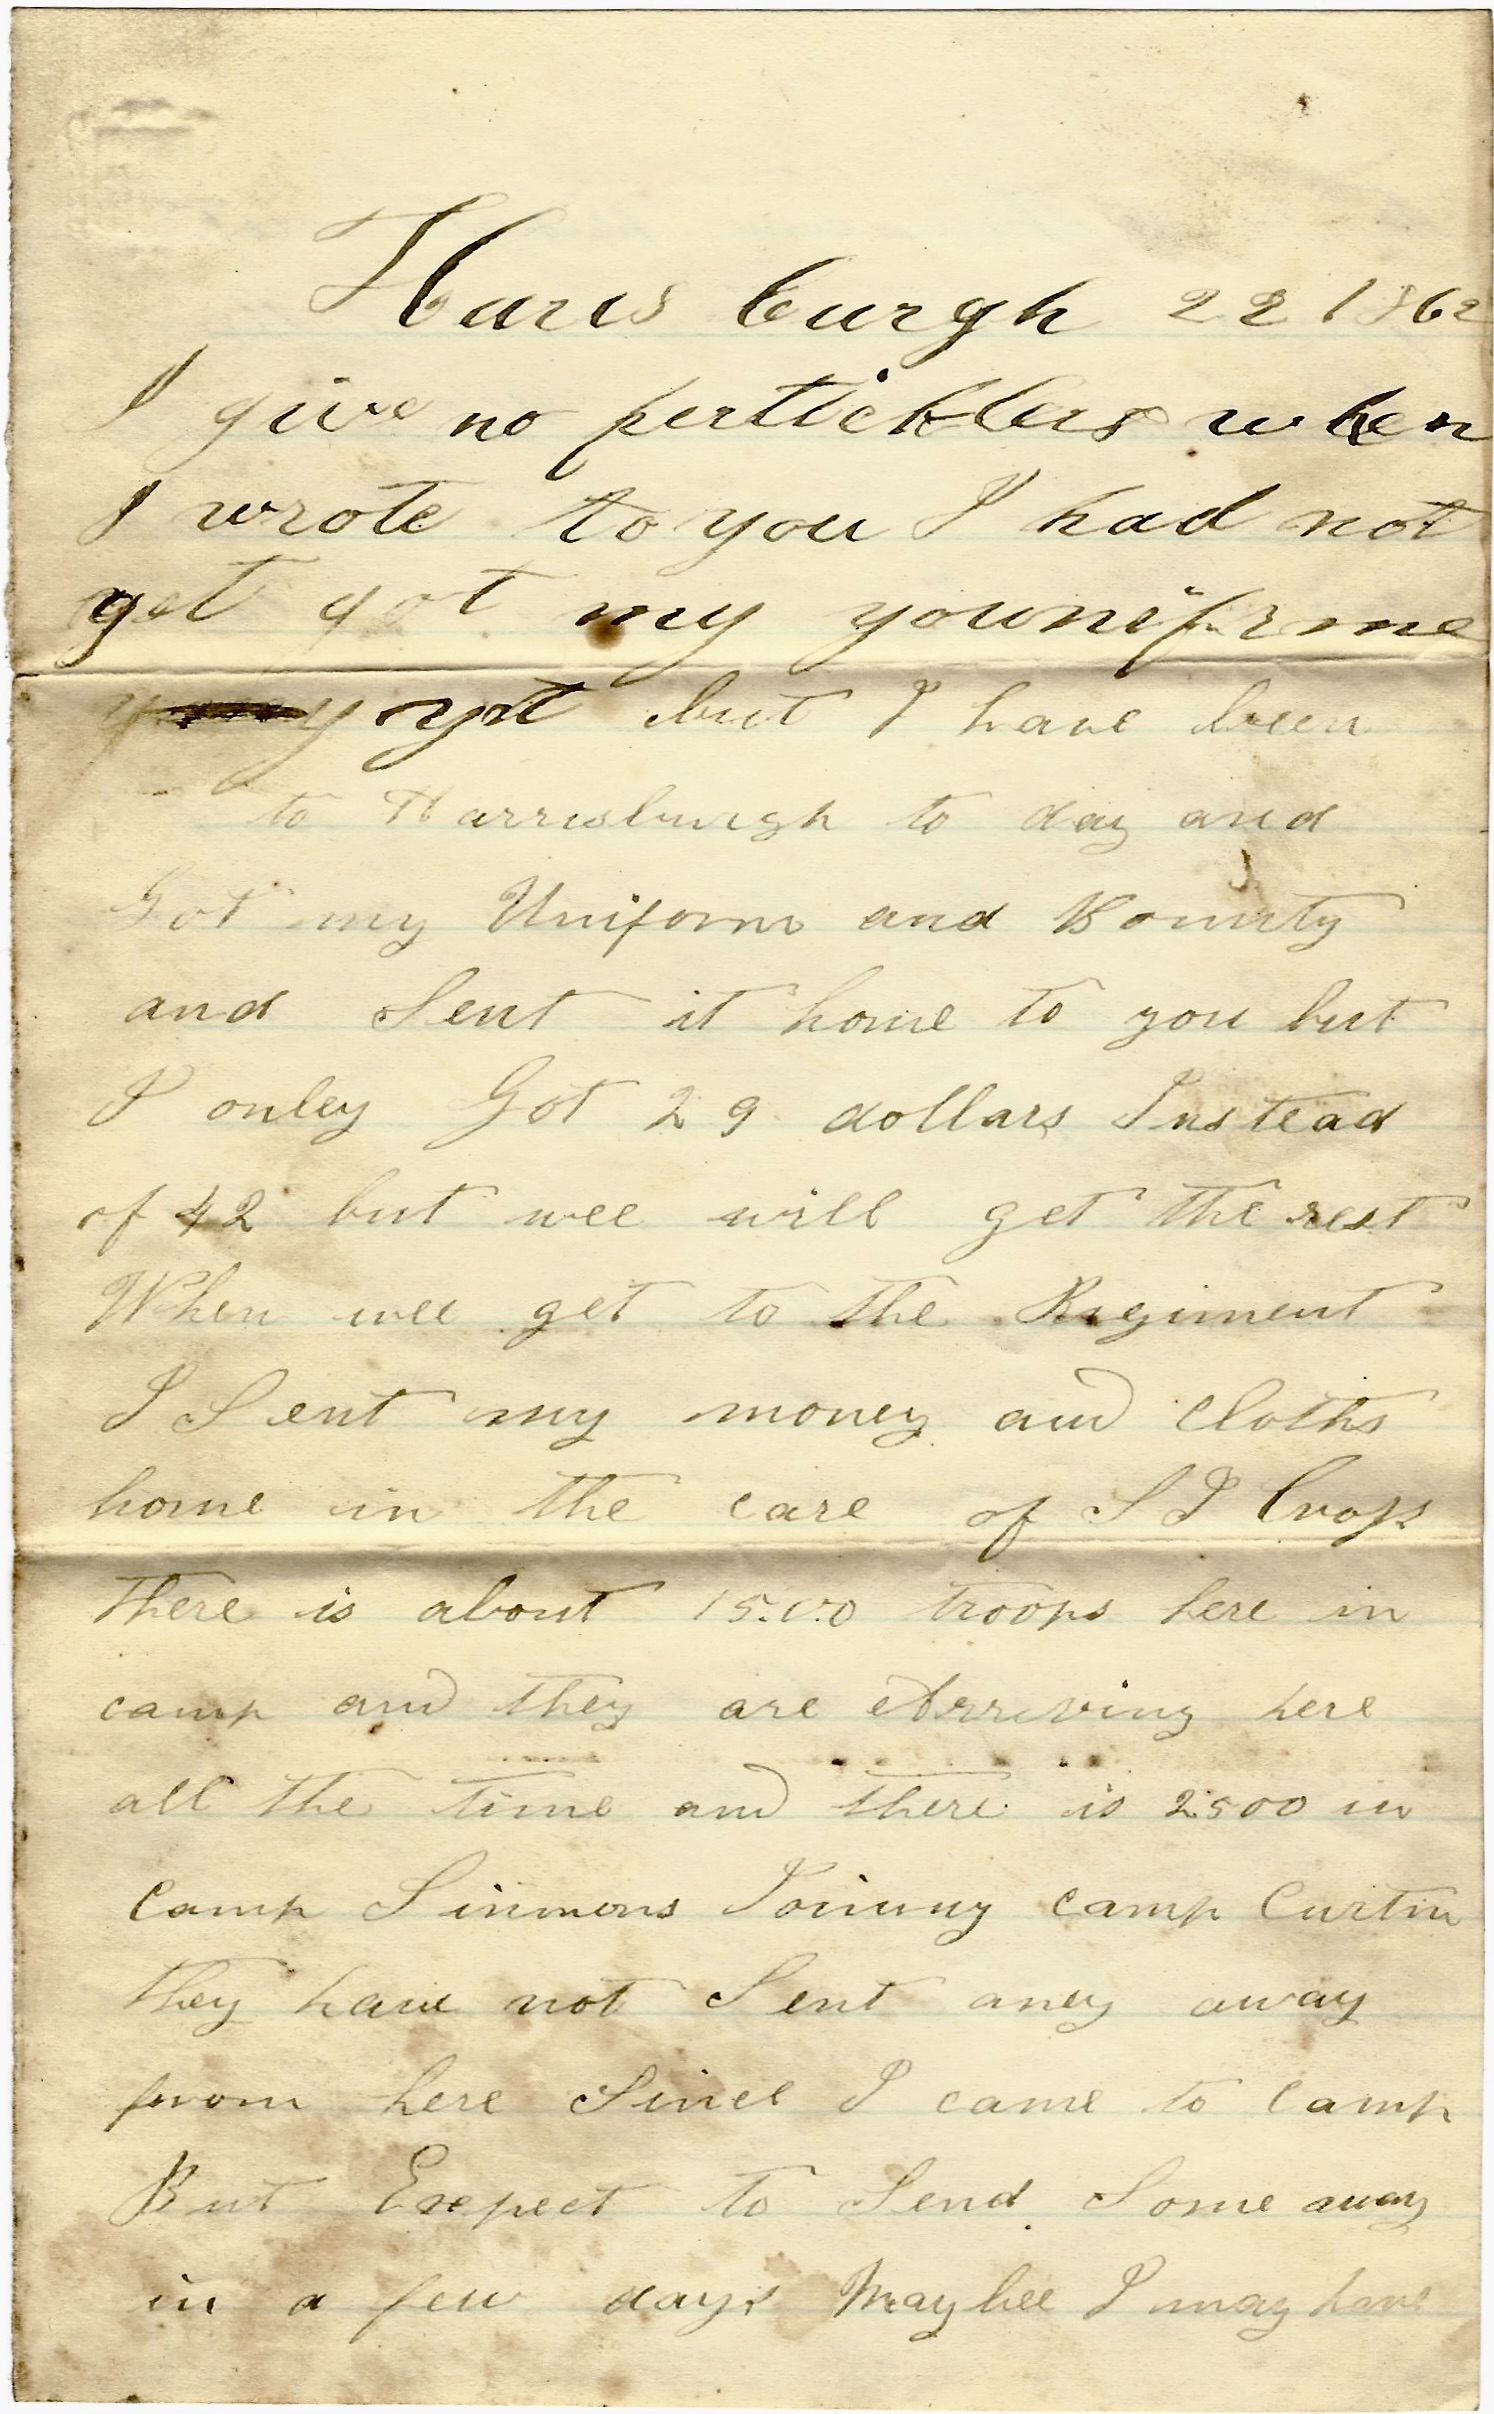 Haris burgh 22 1862
I give no pertticklers when
I wrote to you I had not
yet got my younifirme
yet but I have been
to Harrisburgh to day and
Got my Uniform and Bounty
and Sent it home to you but
I onley Got 29 dollars Instead
of 42 but wee will get the rest
When wee get to the Regiment
I Sent my money and cloths
home in the care of S I
there is about 1500 troops here in
camp and they are Arreving here
all the time and there is 2500 in
Camp Simmons Joinung camp Curtin
they have not Sent aney away
from here Since I came to Camp
But Exepect to Send Some away
in a few days Maybee I may have